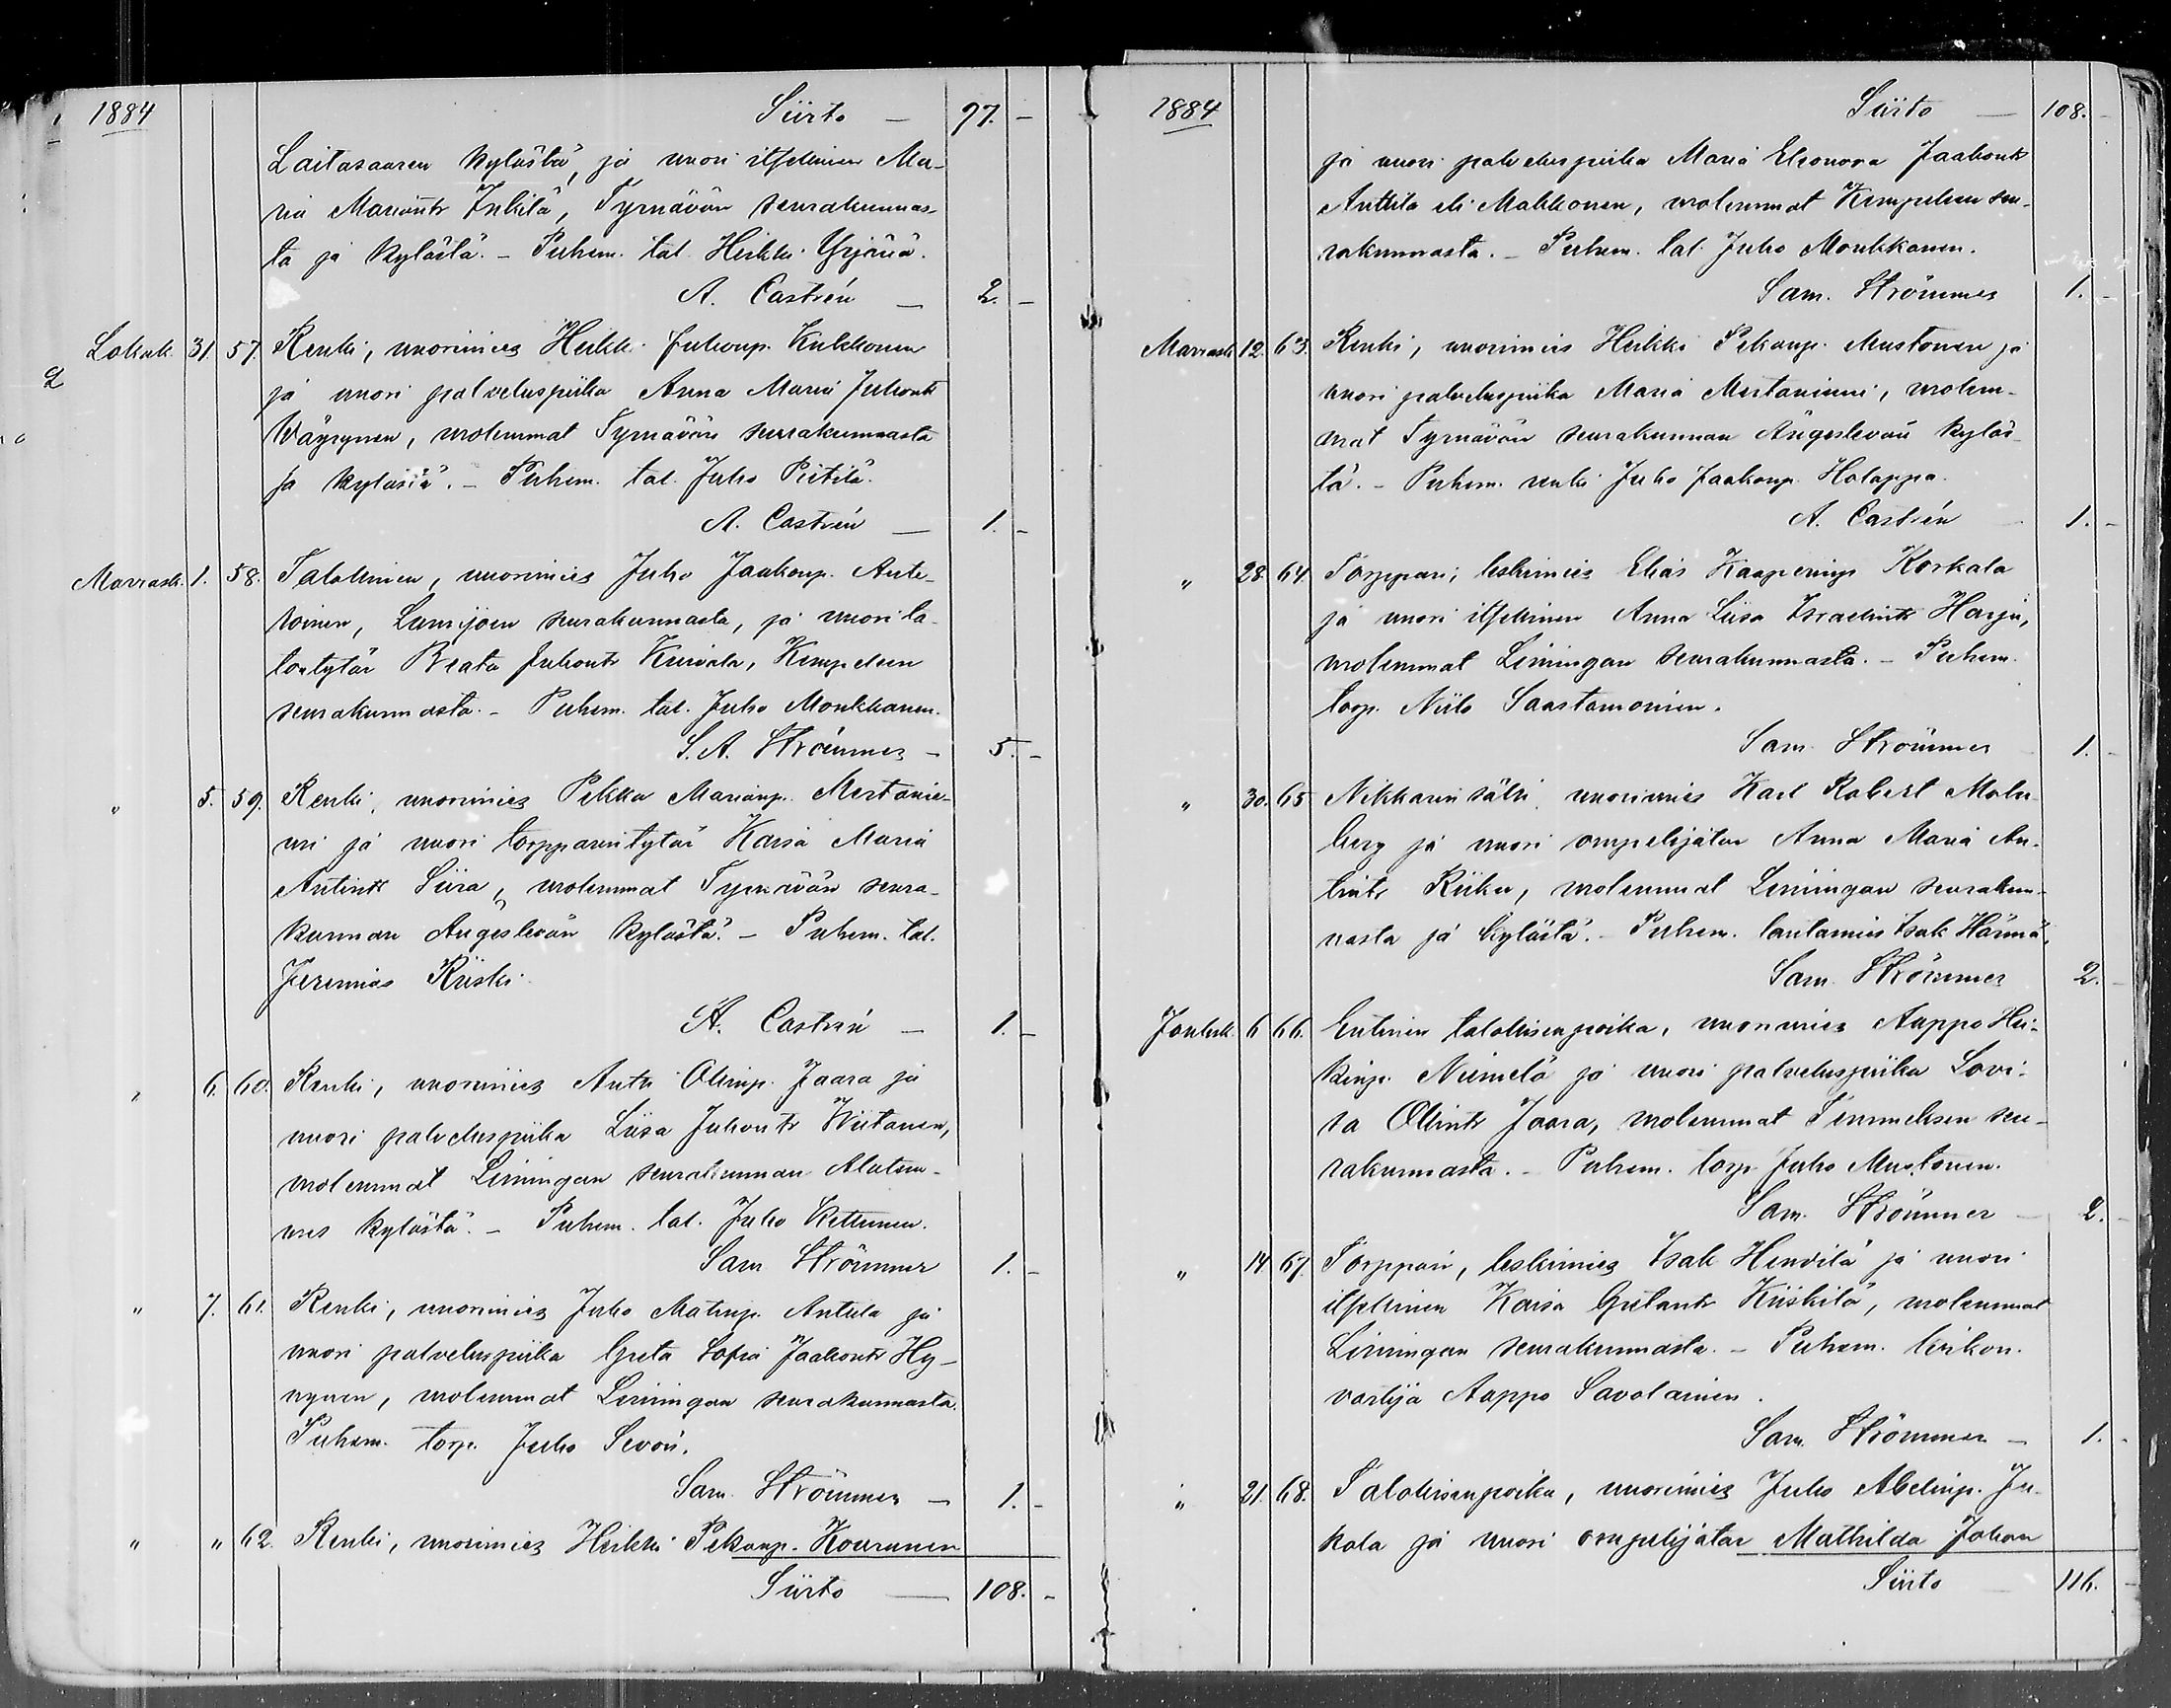 1884 Siirto — 97. —
Laitasaaren kylästä, ja nuori itsellinen Ma-
ria Mariantr Inkilä, Tyrnävän seurakunnas-
ta ja kylästä. – Puhem. tal. Heikki Yrjänä.
A. Castrén — 2. —
Lokak. 31. 57. Renki, nuorimies Heikki Juhonp. Kukkonen
ja nuori palveluspiika Anna Maria Juhontr
Wäyrynen, molemmat Tyrnävän seurakunnasta
ja kylästä. – Puhem. tal. Juho Pietilä.
A. Castrén — 1. —
Marrask. 1. 58. Talollinen, nuorimies Juho Jaakonp. Ante-
roinen, Lumijoen seurakunnasta, ja nuori ta-
lontytär Beata Juhontr Kuivala, Kempeleen
seurakunnasta. – Puhem. tal. Juho Monkkanen.
S. A. Strömmer — 5. —
" 5. 59. Renki, nuorimies Pekka Marianp. Mertanie-
mi ja nuori torpparintytär Kaisa Maria
Antintr Siira, molemmat Tyrnävän seura-
kunnan Ängeslevän kylästä. – Puhem. tal.
Jeremias Riiski.
A. Castrén — 1. —
" 6. 60. Renki, nuorimies Antti Ollinp. Jaara ja
nuori palveluspiika Liisa Juhontr Wiitanen,
molemmat Limingan seurakunnan Alatem-
mes kylästä. – Puhem. tal. Juho Kettunen.
Sam Strömmer 1. —
" 7. 61. Renki, nuorimies Juho Matinp. Anttila ja
nuori palveluspiika Greta Sofia Jaakontr Hy-
nynen, molemmat Limingan seurakunnasta.
Puhem. torp. Juho Sevón.
Sam. Strömmer — 1. —
" " 62. Renki, nuorimies Heikki Pekanp. Kourunen
Siirto — 108. —
1884 Siirto — 108. —
ja nuori palveluspiika Maria Eleonora Jaakontr
Anttila eli Makkonen, molemmat Kempeleen seu-
rakunnasta. – Puhem. tal. Juho Monkkanen.
Sam. Strömmer 1. —
Marrask. 12. 63. Renki, nuorimies Heikki Pekanp. Mustonen ja
nuori palveluspiika Maria Mertaniemi, molem-
mat Tyrnävän seurakunnan Ängeslevän kyläs-
tä. – Puhem. renki Juho Jaakonp. Holappa.
A. Castrén 1. —
" 28. 64. Torppari, leskimies Elias Kasperinp. Korkala
ja nuori itsellinen Anna Liisa Israelintr Harju,
molemmat Limingan seurakunnasta. – Puhem.
torp. Niilo Saastamoinen.
Sam. Strömmer 1. —
" 30. 65. Nikkarin sälli, nuorimies Karl Robert Malm-
berg ja nuori ompelijatar Anna Maria An-
tintr Riika, molemmat Limingan seurakun-
nasta ja kylästä. – Puhem. lautamies Isak Härmä.
Sam. Strömmer 2. —
Jouluk. 6. 66. Entinen talollisenpoika, nuorimies Aappo Hei-
kinp. Niemelä ja nuori palveluspiika Lovi-
sa Ollintr Jaara, molemmat Temmeksen seu-
rakunnasta. – Puhem. torp. Juho Mustonen.
Sam. Strömmer — 2. —
" 14. 67. Torppari, leskimies Isak Hendilä ja nuori
itsellinen Kaisa Gretantr Kiiskilä, molemmat
Limingan seurakunnasta. – Puhem. kirkon-
vartija Aappo Savolainen.
Sam. Strömmer — 1. —
" 21. 68. Talollisenpoika, nuorimies Juho Abelinp. Ju-
kola ja nuori ompelijatar Mathilda Johan
Siirto — 116. —